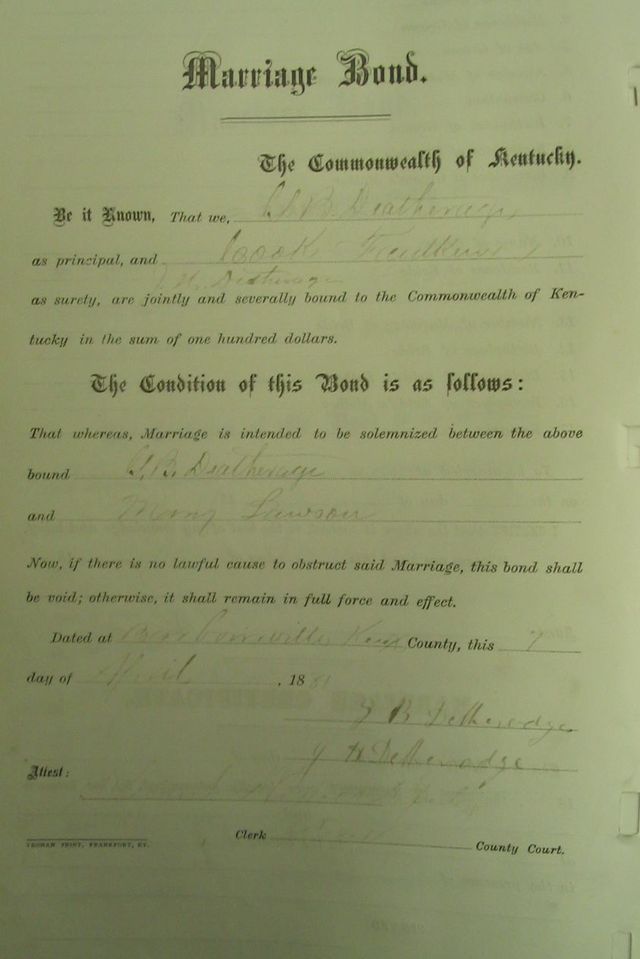 Marriage Bond.
The Commonwealth of Kentucky.
Be it Known, That we, B. Deatherage
as principal, and
as surety, are jointly and severally bound to the Commonwealth of Ken-
tucky in the sum of one hundred dollars.
The Condition of this Bond is as follows:
That whereas, Marriage is intended to be solemnized between the above
bound B. Deatherage
and Mary Lawson
Now, if there is no lawful cause to obstruct said Marriage, this bond shall
be void; otherwise, it shall remain in full force and effect.
Dated at Barbourville Knox County, this 7
day of April , 1881
J B Detheradge
J H Detheradge
Attest:
Clerk County Court.
YEOMAN PRINT, FRANKFORT, KY.